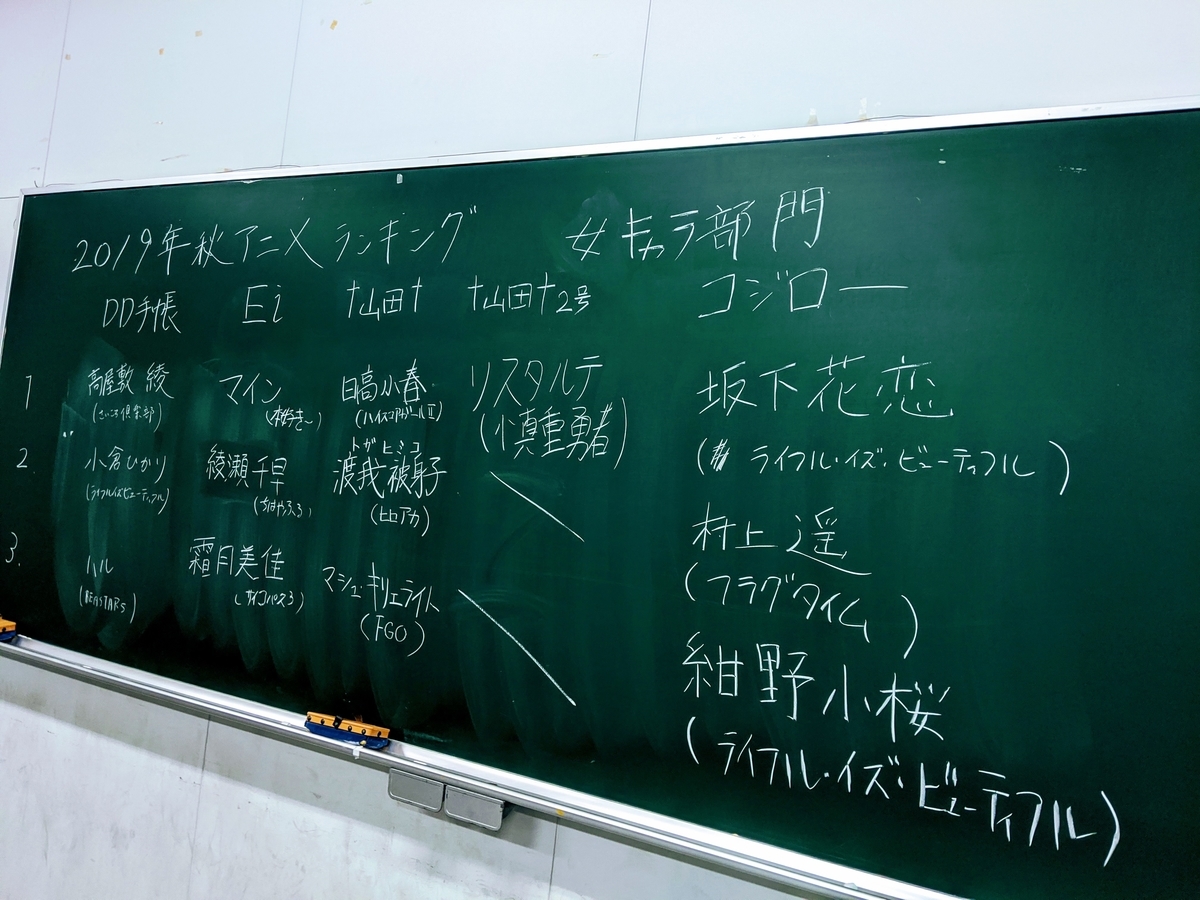 2019年秋アニメランキング 女キャラ部門
DD手帳 Ei †山田† †山田†2号 コジロー
1 高屋敷 綾 マイン 日高小春 リスタルテ 坂下花恋
(さいころ倶楽部) (本好き〜) (ハイスコアガールⅡ) (慎重勇者) (ライフル・イズ・ビューティフル)
2. 小倉ひかり 綾瀬千早 渡我被身子 村上遥
トガヒミコ
(ライフルイズビューティフル) (ちはやふる3) (ヒロアカ) (フラグタイム)
3. ハル 霜月美佳 マシュ・キリエライト 紺野小桜
(BEASTARS) (サイコパス3) (FGO) (ライフル・イズ・ビューティフル)